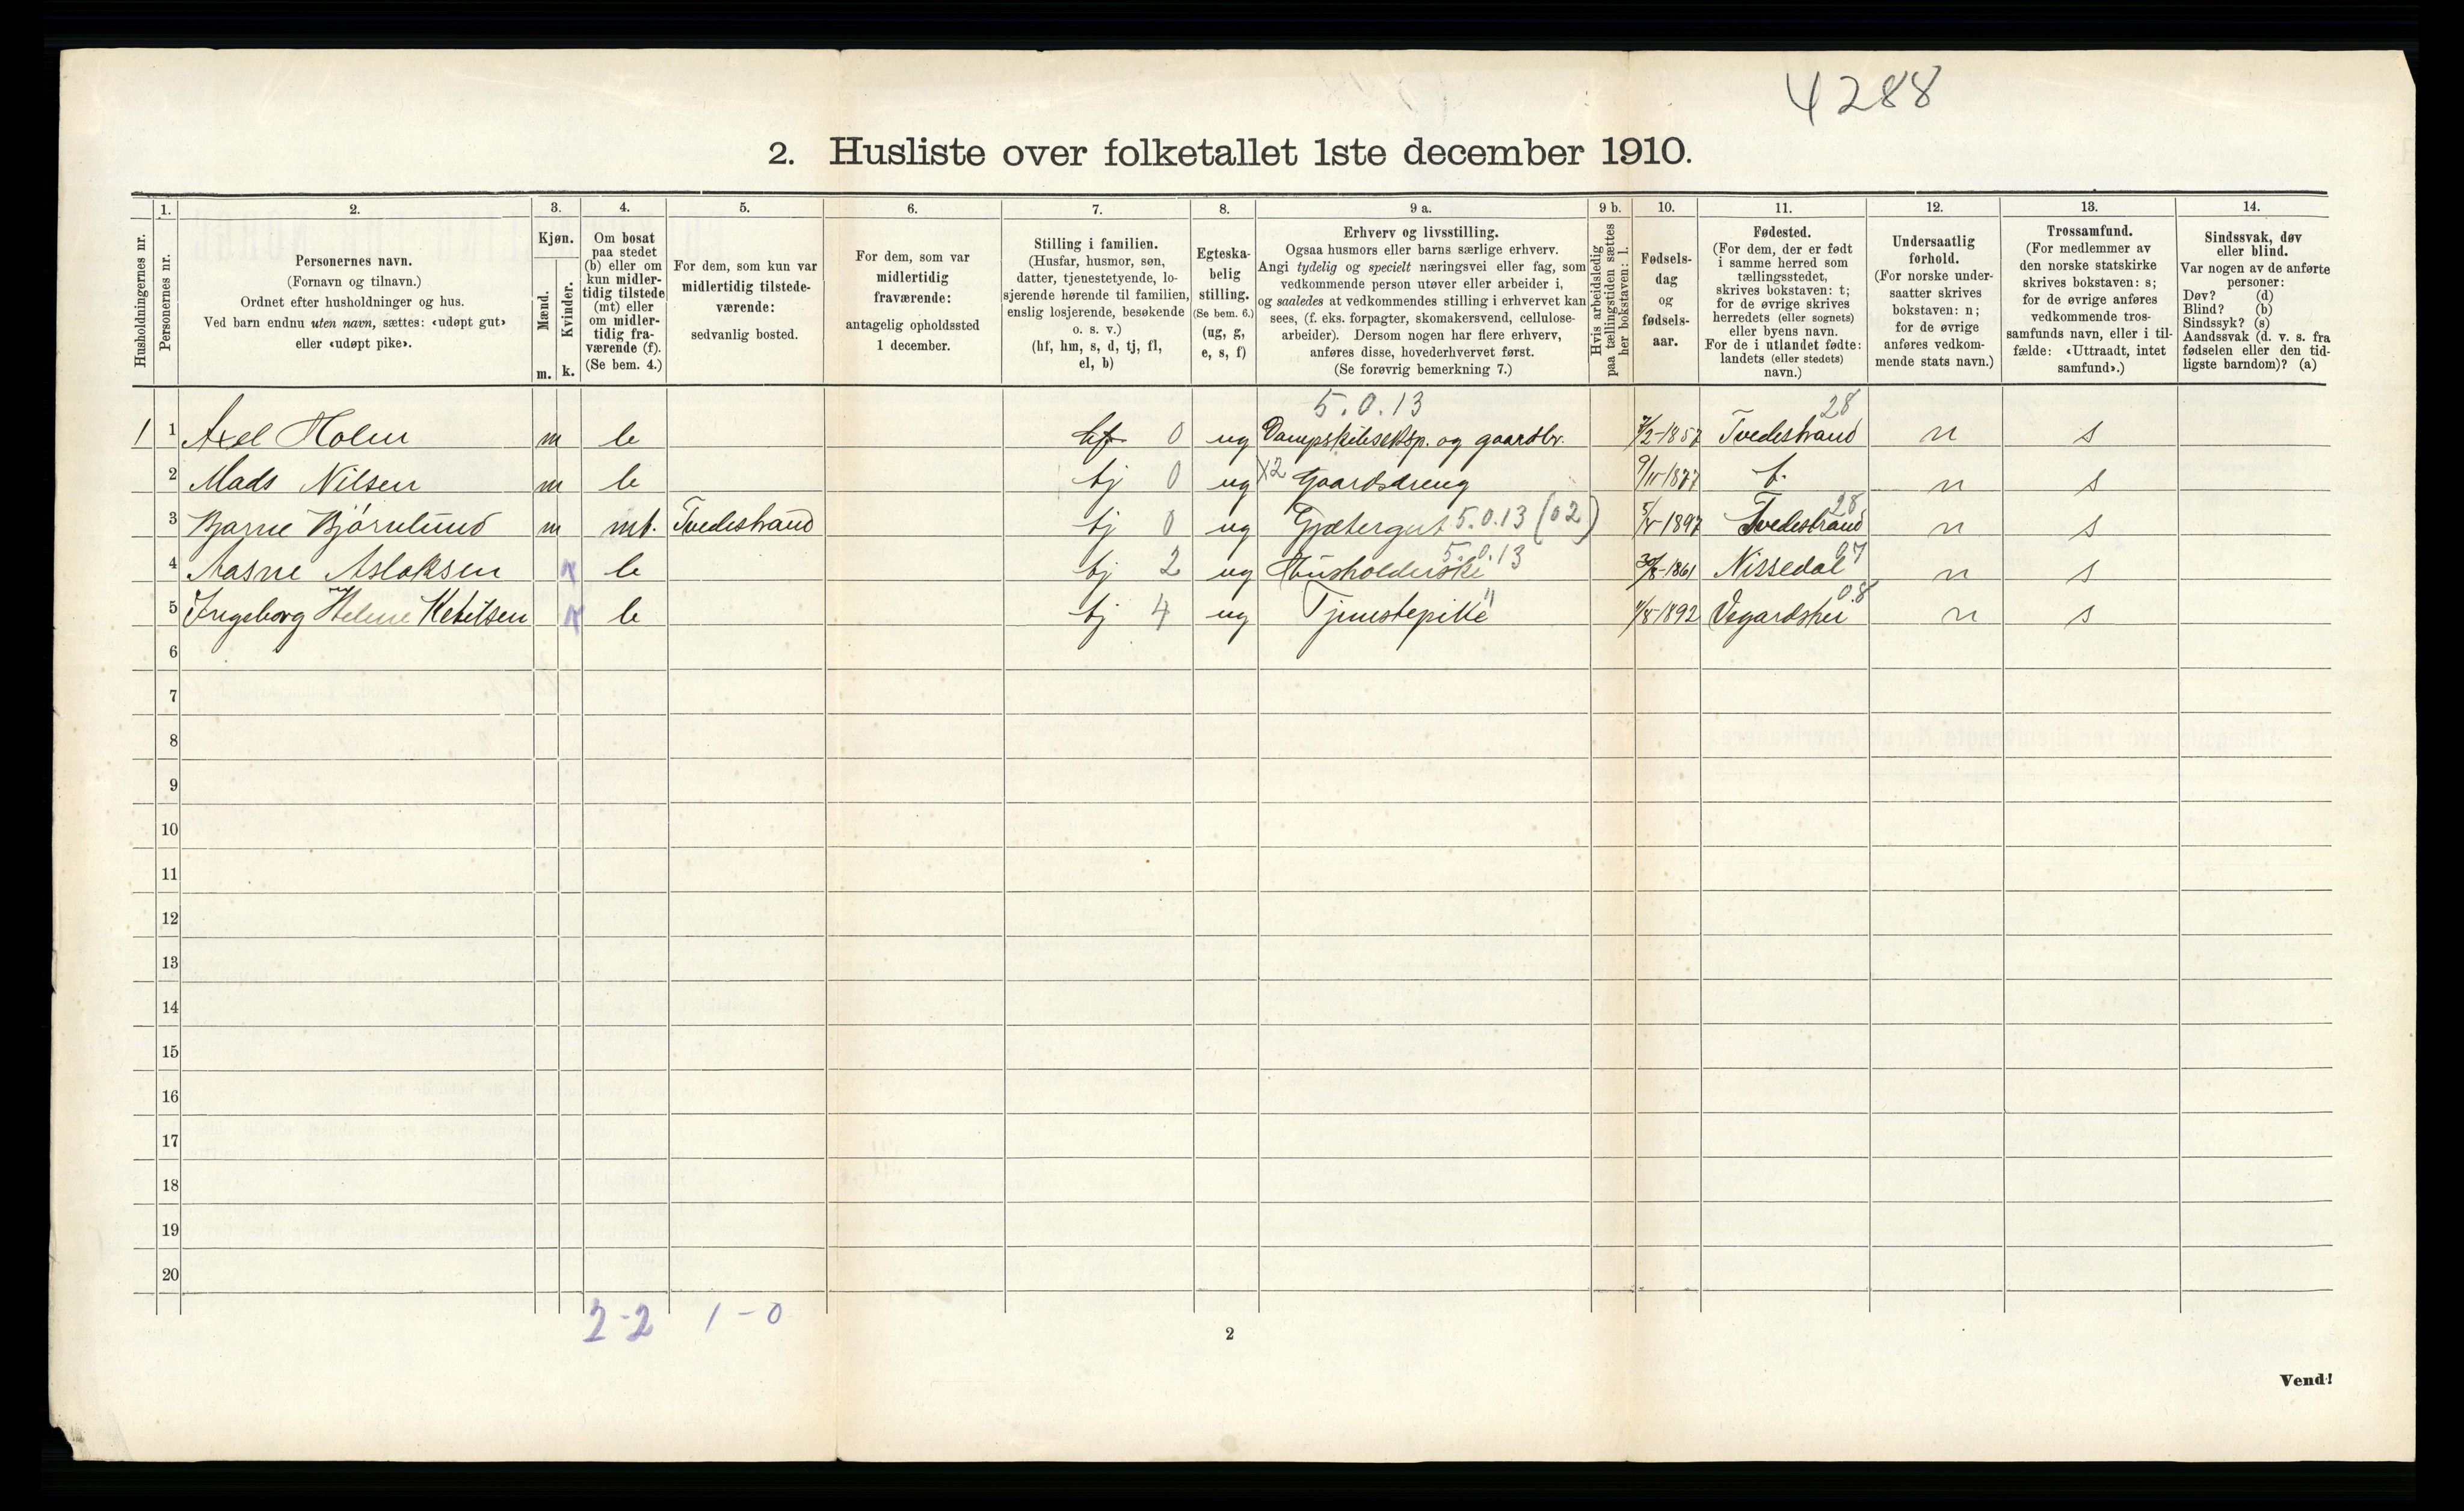 4288
2. Husliste over folketallet 1ste december 1910.
Husholdningernes nr.
1.
Personernes nr.
2.
Personernes navn.
(Fornavn og tilnavn.)
Ordnet efter husholdninger og hus.
Ved barn endnu uten navn, sættes: «udøpt gut»
eller «udøpt pike».
3.
Kjøn.
Mænd.
m.
Kvinder.
k.
4.
Om bosat
paa stedet
(b) eller om
kun midler-
tidig tilstede
(mt) eller
om midler-
tidig fra-
værende (f).
(Se bem. 4.)
5.
For dem, som kun var
midlertidig tilstede-
værende:
sedvanlig bosted.
6.
For dem, som var
midlertidig
fraværende:
antagelig opholdssted
1 december.
7.
Stilling i familien.
(Husfar, husmor, søn,
datter, tjenestetyende, lo-
sjerende hørende til familien,
enslig losjerende, besøkende
o. s. v.)
(hf, hm, s, d, tj, fl,
el, b)
8.
Egteska-
belig
stilling.
(Se bem. 6.)
(ug, g,
e, s, f)
9 a.
Erhverv og livsstilling.
Ogsaa husmors eller barns særlige erhverv.
Angi tydelig og specielt næringsvei eller fag, som
vedkommende person utøver eller arbeider i,
og saaledes at vedkommendes stilling i erhvervet kan
sees, (f. eks. forpagter, skomakersvend, cellulose-
arbeider). Dersom nogen har flere erhverv,
anføres disse, hovederhvervet først.
(Se forøvrig bemerkning 7.)
9 b.
Hvis arbeidsledig
paa tællingstiden sættes
her bokstaven: l.
10.
Fødsels-
dag
og
fødsels-
aar.
11.
Fødested.
(For dem, der er født
i samme herred som
tællingsstedet,
skrives bokstaven: t;
for de øvrige skrives
herredets (eller sognets)
eller byens navn.
For de i utlandet fødte:
landets (eller stedets)
navn.)
12.
Undersaatlig
forhold.
(For norske under-
saatter skrives
bokstaven: n;
for de øvrige
anføres vedkom-
mende stats navn.)
13.
Trossamfund.
(For medlemmer av
den norske statskirke
skrives bokstaven: s;
for de øvrige anføres
vedkommende tros-
samfunds navn, eller i til-
fælde: «Uttraadt, intet
samfund».)
14.
Sindssvak, døv
eller blind.
Var nogen av de anførte
personer:
Døv? (d)
Blind? (b)
Sindssyk? (s)
Aandssvak (d. v. s. fra
fødselen eller den tid-
ligste barndom)? (a)
5.0.13 28
1 1 Axel Holm m b hf 0 ug Dampskibseksp. og gaardbr. 7/2-1857 Tvedestrand n s
2 Mads Nilsen m b tj 0 ug X2 Gaardsdreng 9/11-1877 t. n s
3 Bjarne Bjørnlund m mt. Tvedestrand tj 0 ug Gjætergut 5.0.13 (02) 5/5-1897 Tvedestrand 28 n s
4 Aasne Aslaksen k b tj 2 ug Husholderske 5.0.13 30/8-1861 Nissedal 07 n s
5 Ingeborg Helene Ketilsen k b tj 4 ug Tjenestepike " /8 1892 Vegardshei 08 n s
6
7
8
9
10
11
12
13
14
15
16
17
18
19
20
2-2 1-0
2
Vend!